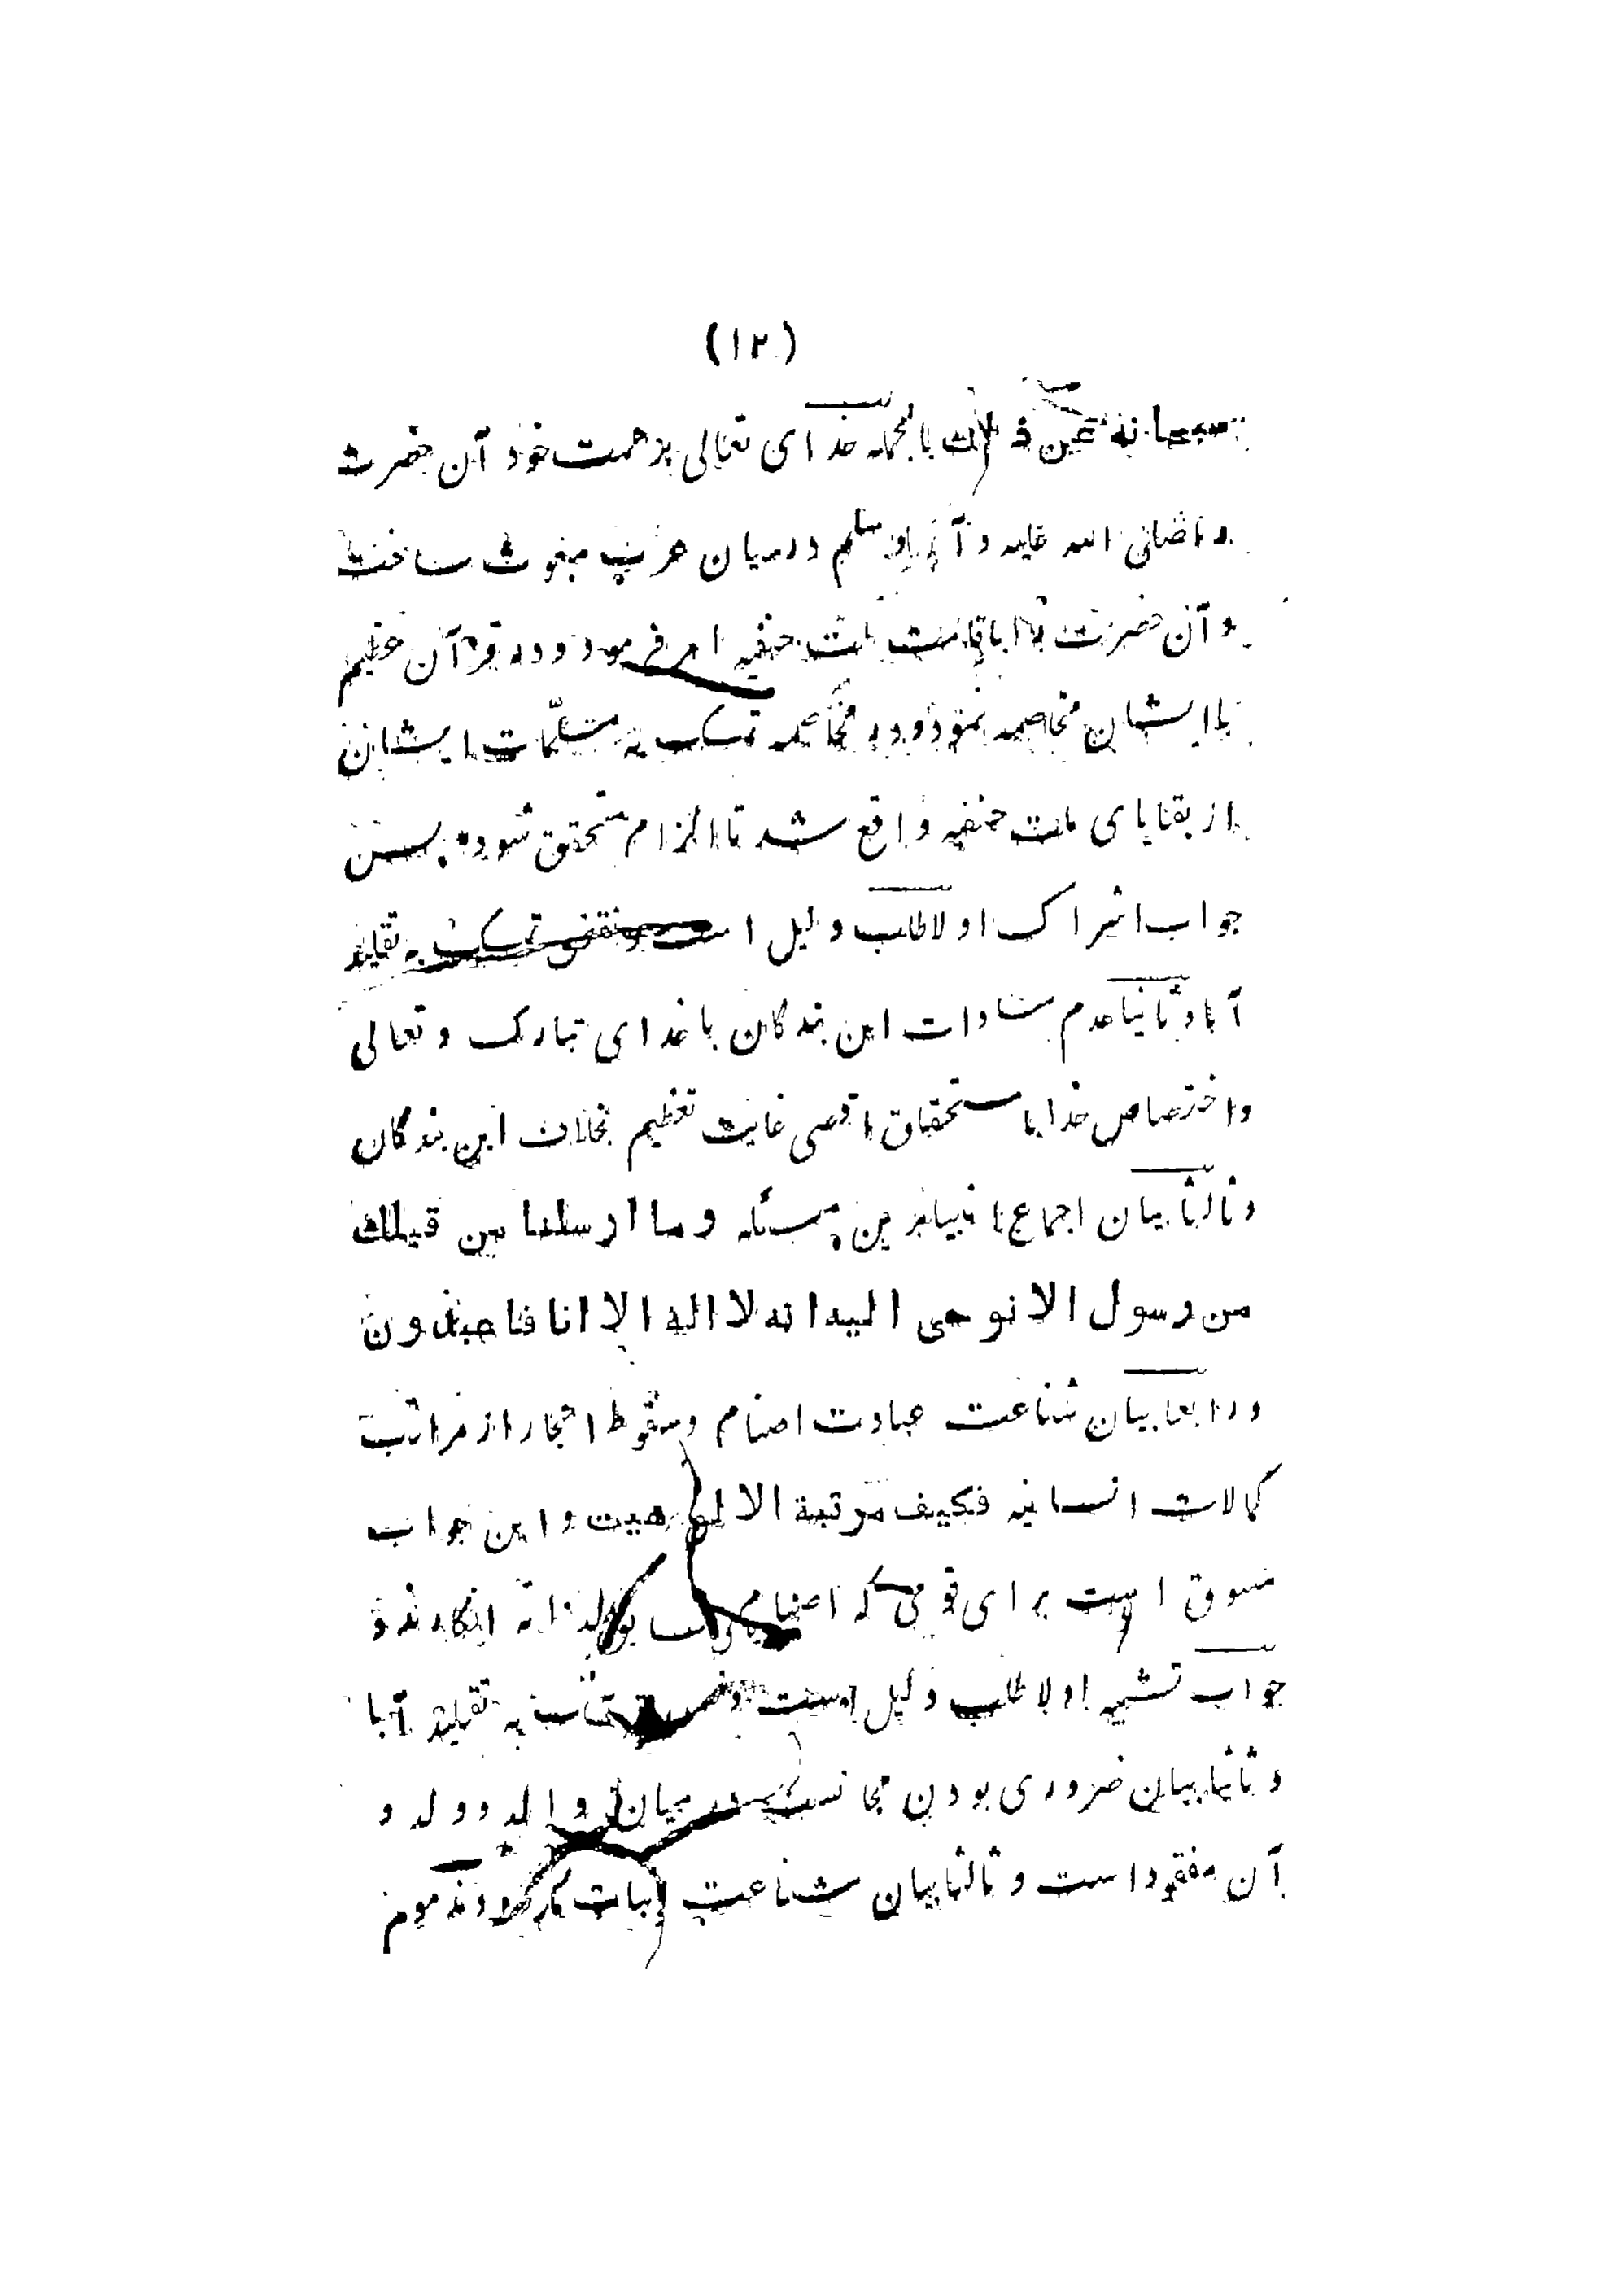 (١٢)
سبحانه عن ذلك بالجمله خدای تعالی برحمت خود آن حضرت
را صلی الله علیه و آله و سلم درمیان عرب مبعوث ساخت
و آن حضرت را باقامت ملت حنفیه امر فرمود و در قرآن عظیم
با ایشان مخاصمه نمود و در مخاصمه تمسک به مسلّمات ایشان
از بقایای ملت حنفیه واقع شد تا الزام متحقق شود پس
جواب اشراک اولا طلب دلیل است و نقض تمسک به تقلید
آبا و ثانیا عدم مساوات این بندکان با خدای تبارک و تعالی
و اختصاص خدا باستحقاق اقصی غایت تعظیم بخلاف این بندکان
و ثالثا بیان اجماع انبیا برین مسئله و ما ارسلنا من قبلك
من رسول الا نوحی الیه انه لا اله الا انا فاعبدون
و رابعا بیان شناعت عبادت اصنام و سقوط احجار از مراتب
کمالات انسانیه فکیف مرتبة الالوهیت و این جواب
مسوق است برای قومی که اصنام را معبود لذاته انکارند و
جواب تشبیه اولا طلب دلیل است و نقض تمسک به تقلید آبا
و ثانیا بیان ضروری بودن مجانست در میان والد و ولد و
آن مفقود است و ثالثا بیان شناعت اثبات مکروه و مذموم